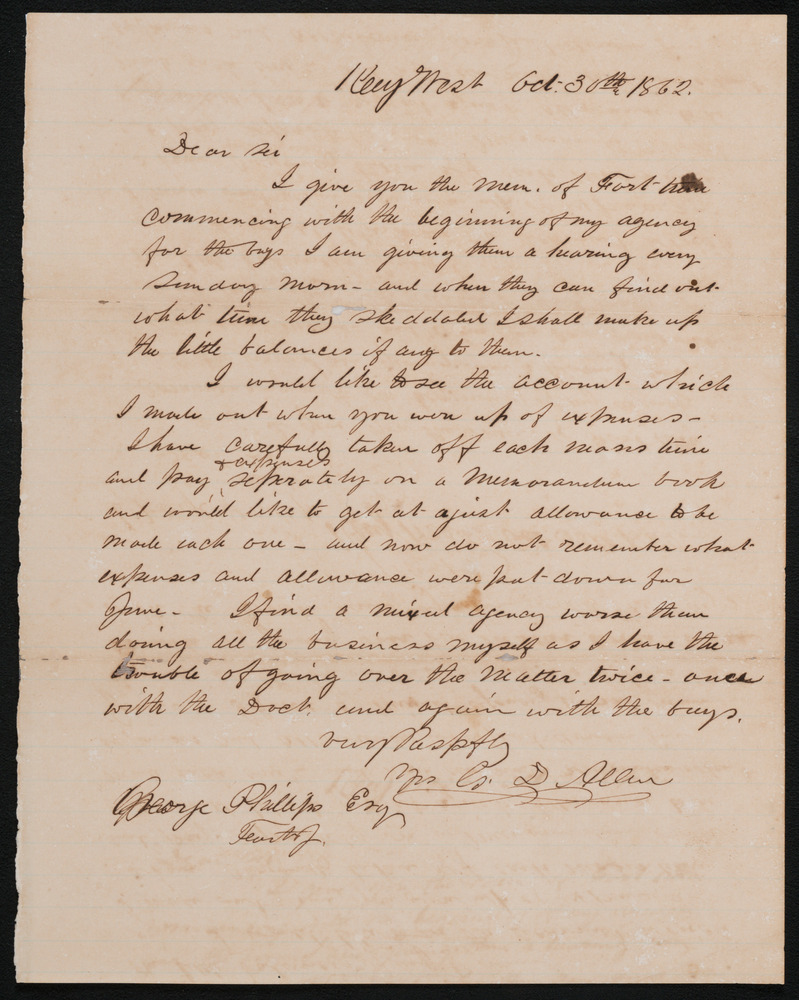 Key West Oct. 30th 1862.
Dear Sir
I give you the mem. of Fort time
commencing with the beginning of my agency
for the boys I am giving them a hearing every
Sunday morn - and when they can find out
what time they skedaddled I shall make up
the little balances if any to them.
I would like to see the account which
I made out when you were up of expenses -
I have carefully taken off each mans time
and pay & expenses seperately on a Memorandum book
and would like to get at a just allowance to be
made each one - and now do not remember what
expenses and allowance were put down for
June - I find a mixed agency worse than
doing all the business myself as I have the
trouble of going over the Matter twice - once
with the Doct. and again with the boys.
very Respfly
Yrs D Allen
George Phillips Esq
Fort J.